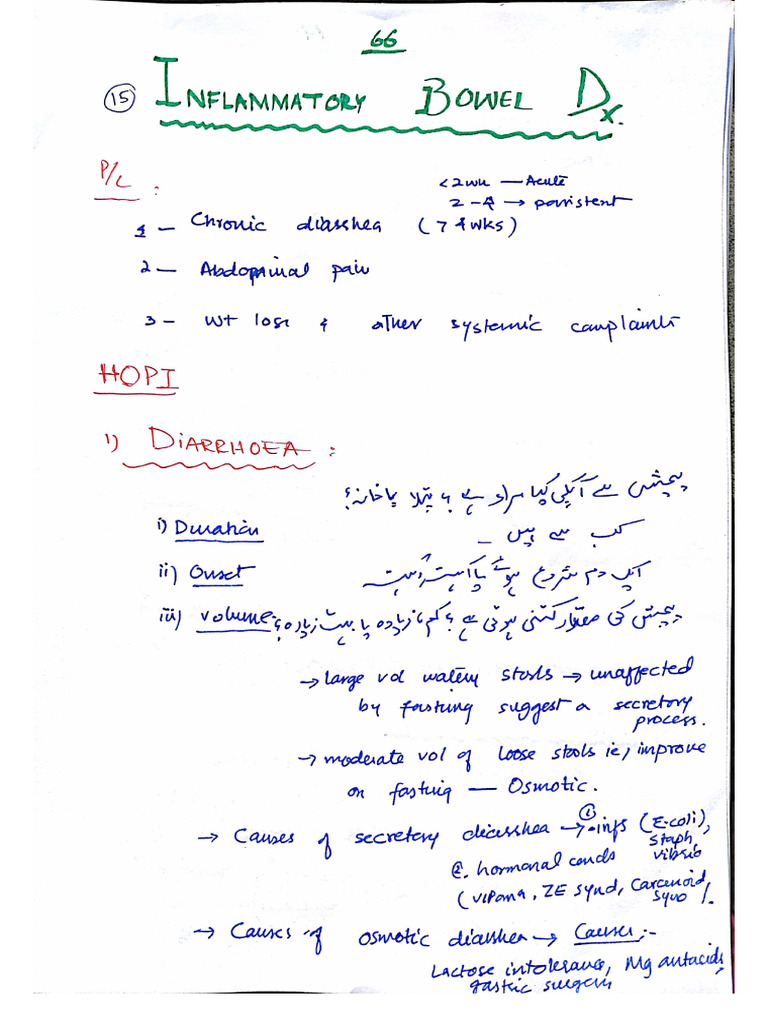 66
15 INFLAMMATORY BOWEL Dx.
P/C :
<2wk — Acute
2-4 → persistent
1 — Chronic diarrhea (>4wks)
2 — Abdominal pain
3 — wt loss & other systemic complaints
HOPI
1) DIARRHOEA :
پیچش سے آپکی کیا مراد ہے ؟ پتلا پاخانہ؟
i) Duration کب سے ہیں
ii) Onset ایک دم شروع ہوئے یا آہستہ آہستہ
iii) Volume: پیچش کی مقدار کتنی ہوتی ہے ؟ کم، زیادہ یا بہت زیادہ؟
→ large vol watery stools → unaffected
by fasting suggest a secretory
process.
→ moderate vol of loose stools ie, improve
on fasting — Osmotic.
→ Causes of secretory diarrhea → ① infs (E-coli),
Staph,
vibrio
②. hormonal conds
(VIPoma, ZE synd, Carcenoid
synd).
→ Causes of osmotic diarrhea → Causes :-
Lactose intolerance, Mg antacids,
gastric surgery